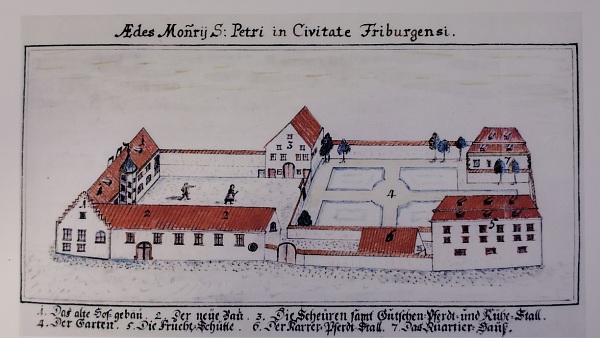 Ædes Moñrij S: Petri in Civitate Friburgensi.
3
1
7
2 2
4
5
6
1. Das alte Hof gebaü. 2. Der neüe Baü. 3. Die Scheüren samt Gutschen-Pferdt-und Kühe-Stall.
4. Der Garten. 5. Die Frucht-Schütte. 6. Der Karrer-Pferdt Stall. 7. Das Quartier-Hauß.